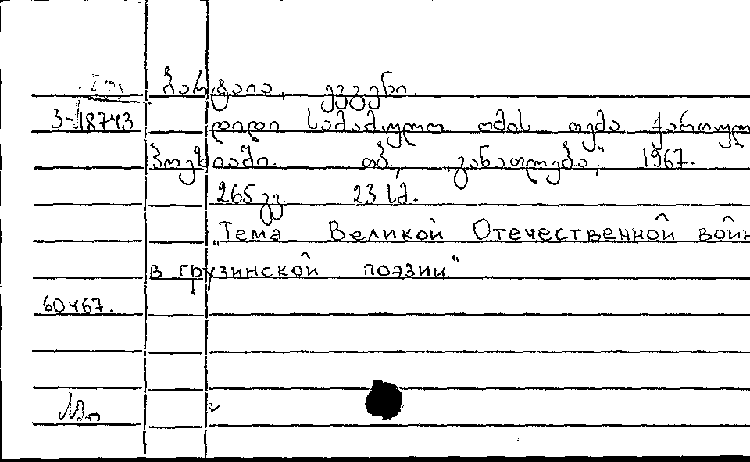 3-18743
დიდი სამამულო ომის თემა ქართულ
პოეზიაში. თბ, „განათლება“, 1967.
265 გვ 23 სმ.
„Тема Великой Отечественной войн
в грузинской поэзии"
60467.